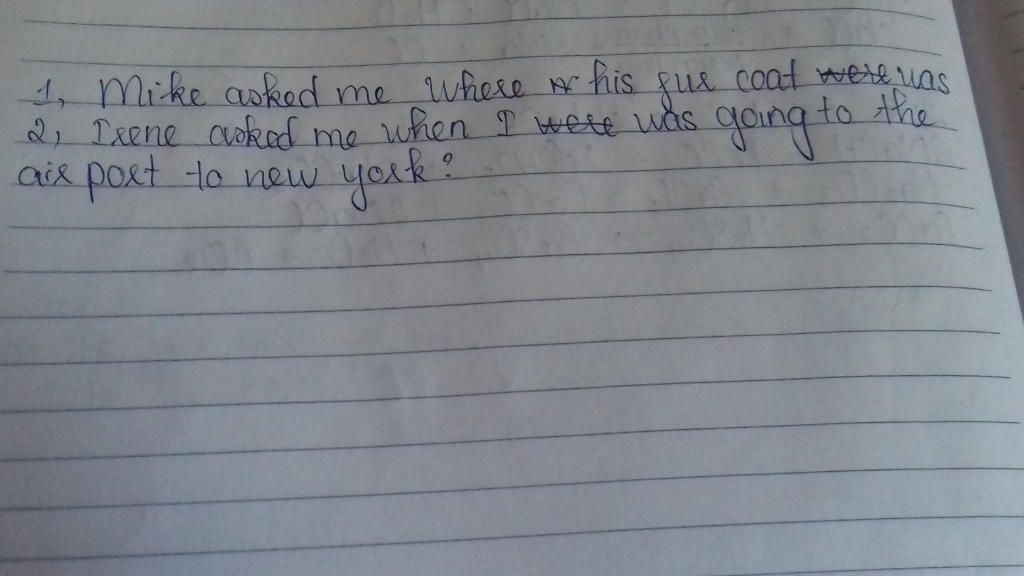 1, Mike asked me where his fur coat were was
2, Irene asked me when I were was going to the
air port to new york?